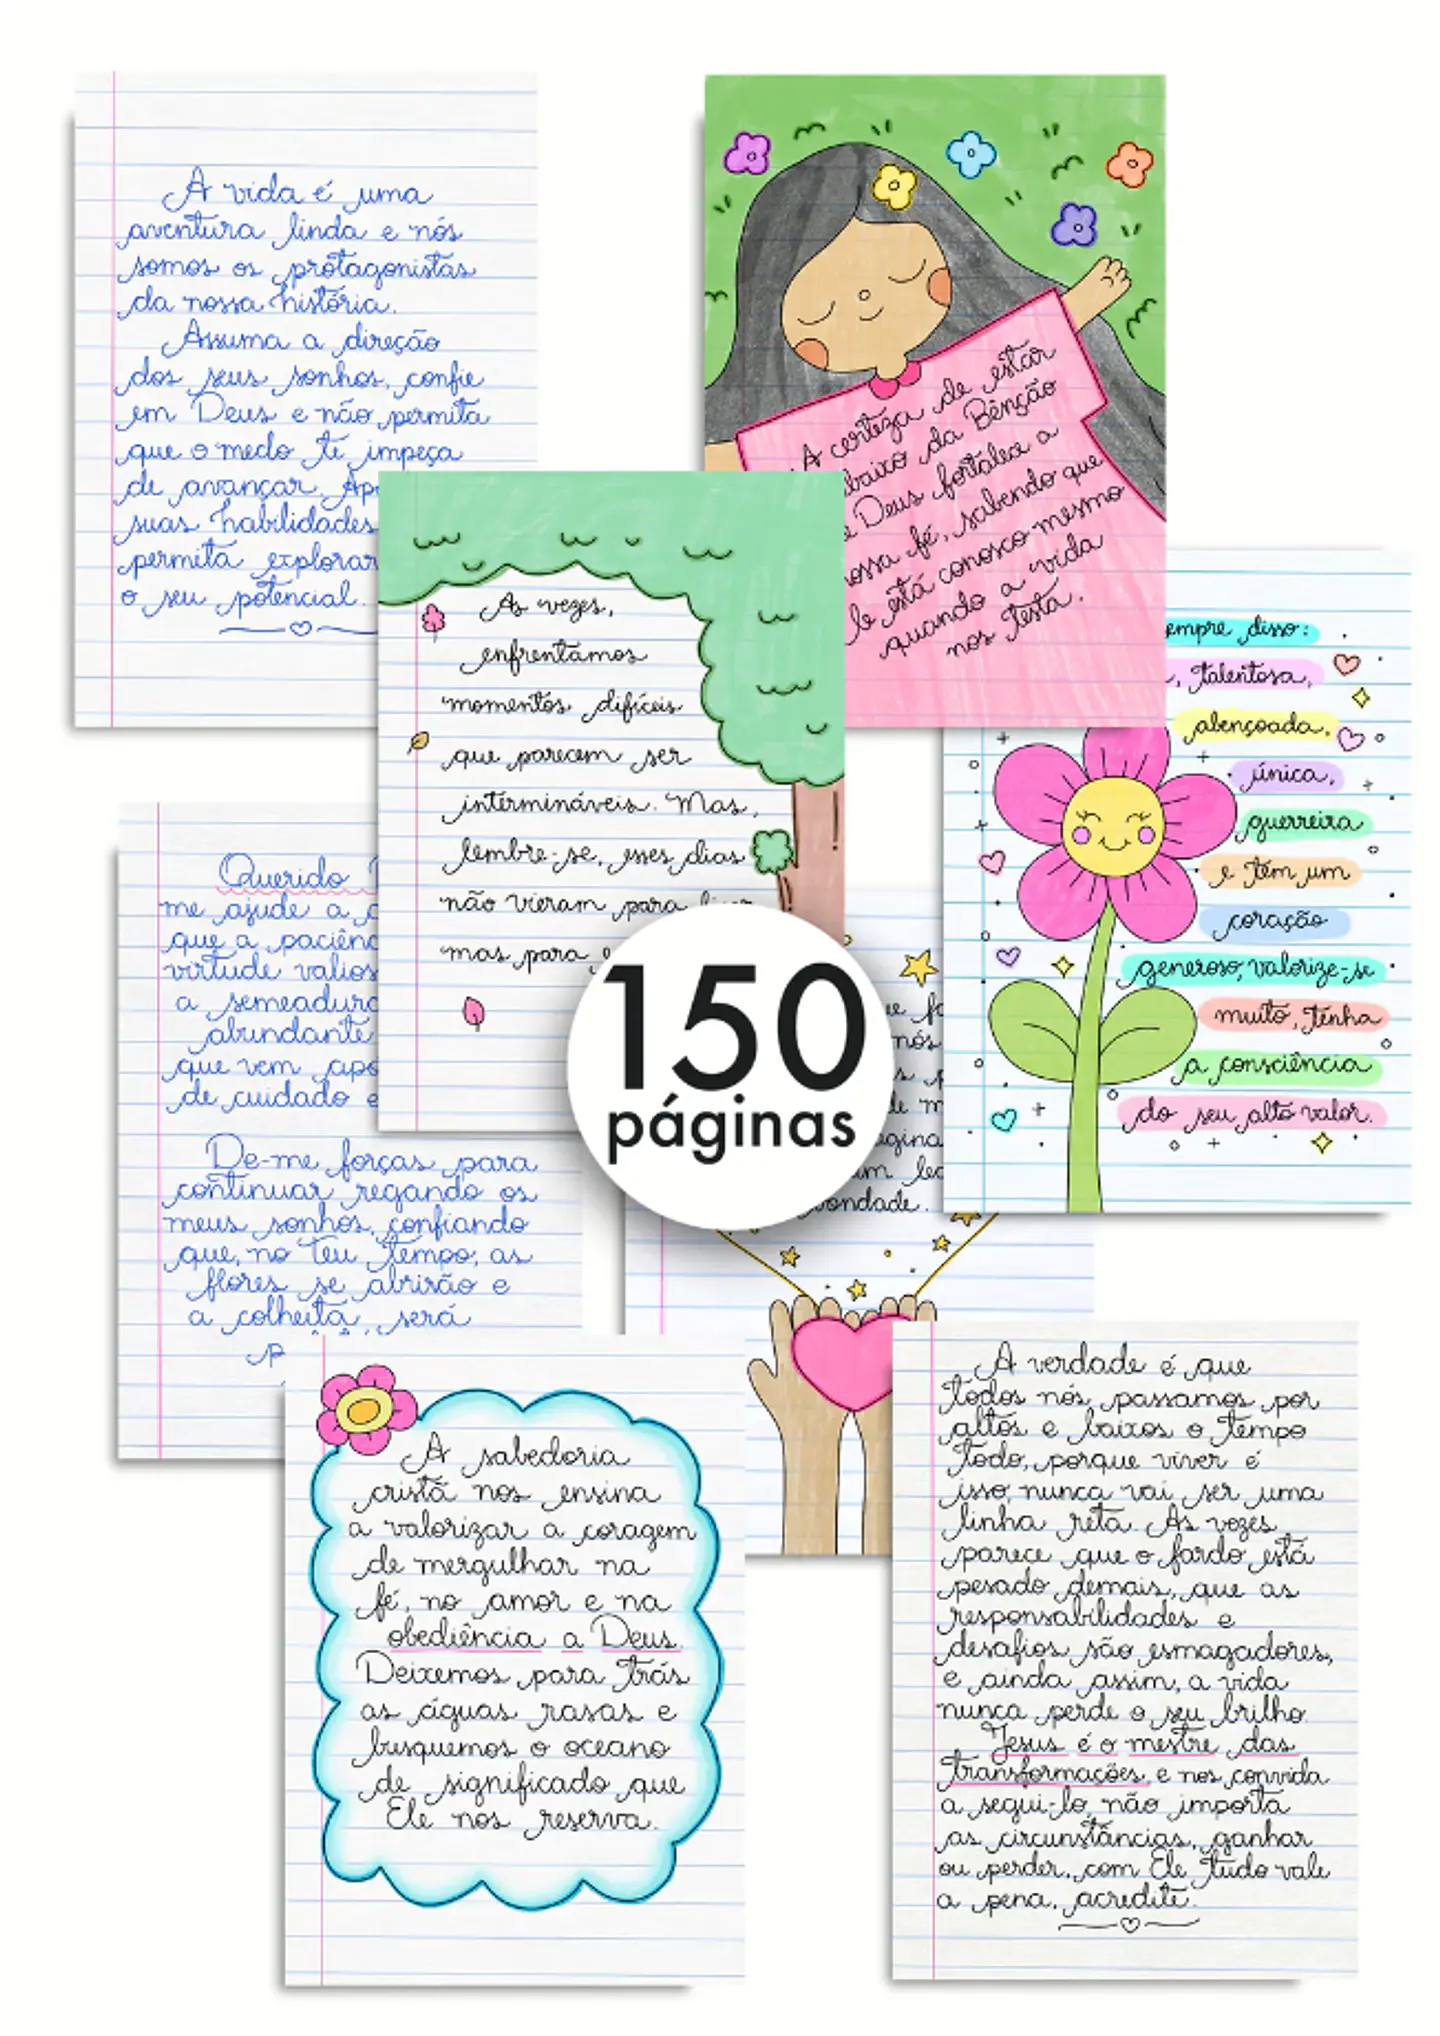 A vida é uma
aventura linda e nós
somos os protagonistas
da nossa história.
Assuma a direção
dos seus sonhos, confie
em Deus e não permita
que o medo te impeça
de avançar. Ap
suas habilidades
permita explorar
o seu potencial.
A certeza de estar
baixo da Bênção
e Deus fortalece a
ossa fé, sabendo que
le está conosco mesmo
quando a vida
nos testa.
As vezes,
enfrentamos
momentos difíceis
que parecem ser
intermináveis. Mas,
lembre-se, esses dias
não vieram para
mas para
empre disso:
, talentosa,
abençoada,
única,
guerreira
e tem um
coração
generoso, valorize-se
muito, tenha
a consciência
do seu alto valor.
Querido
me ajude a
que a paciênc
virtude valios
a semeadura
abundante
que vem apó
de cuidado e
De-me forças para
continuar regando os
meus sonhos, confiando
que, no teu tempo, as
flores se abrirão e
a colheita será
P
150
páginas
ue fo
nós
de m
agina
um leg
bondade.
A sabedoria
cristã nos ensina
a valorizar a coragem
de mergulhar na
fé, no amor e na
obediência a Deus.
Deixemos para trás
as águas rasas e
busquemos o oceano
de significado que
Ele nos reserva.
A verdade é que
todos nós passamos por
altos e baixos o tempo
todo, porque viver é
isso, nunca vai ser uma
linha reta. As vezes
parece que o fardo está
pesado demais, que as
responsabilidades e
desafios são esmagadores,
e ainda assim, a vida
nunca perde o seu brilho.
Jesus é o mestre das
transformações e nos convida
a segui-lo, não importa
as circunstâncias, ganhar
ou perder, com Ele tudo vale
a pena, acredite.